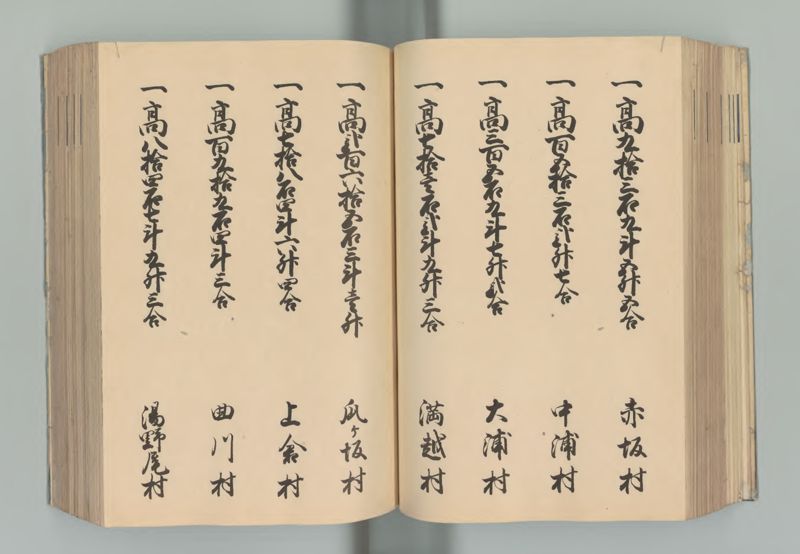 一高九拾三石九斗五升五合 赤坂村
一高百五拾三石弐斗弐升七合 中浦村
一高三百五石九斗七升弐合 大浦村
一高七拾壱石弐斗九升三合 満越村
一高弐百六拾五石三斗壱升 瓜ヶ坂村
一高七拾八石四斗六升四合 上倉村
一高百九拾九石四斗三合 曲川村
一高八拾四石七斗九升三合 湯野尾村